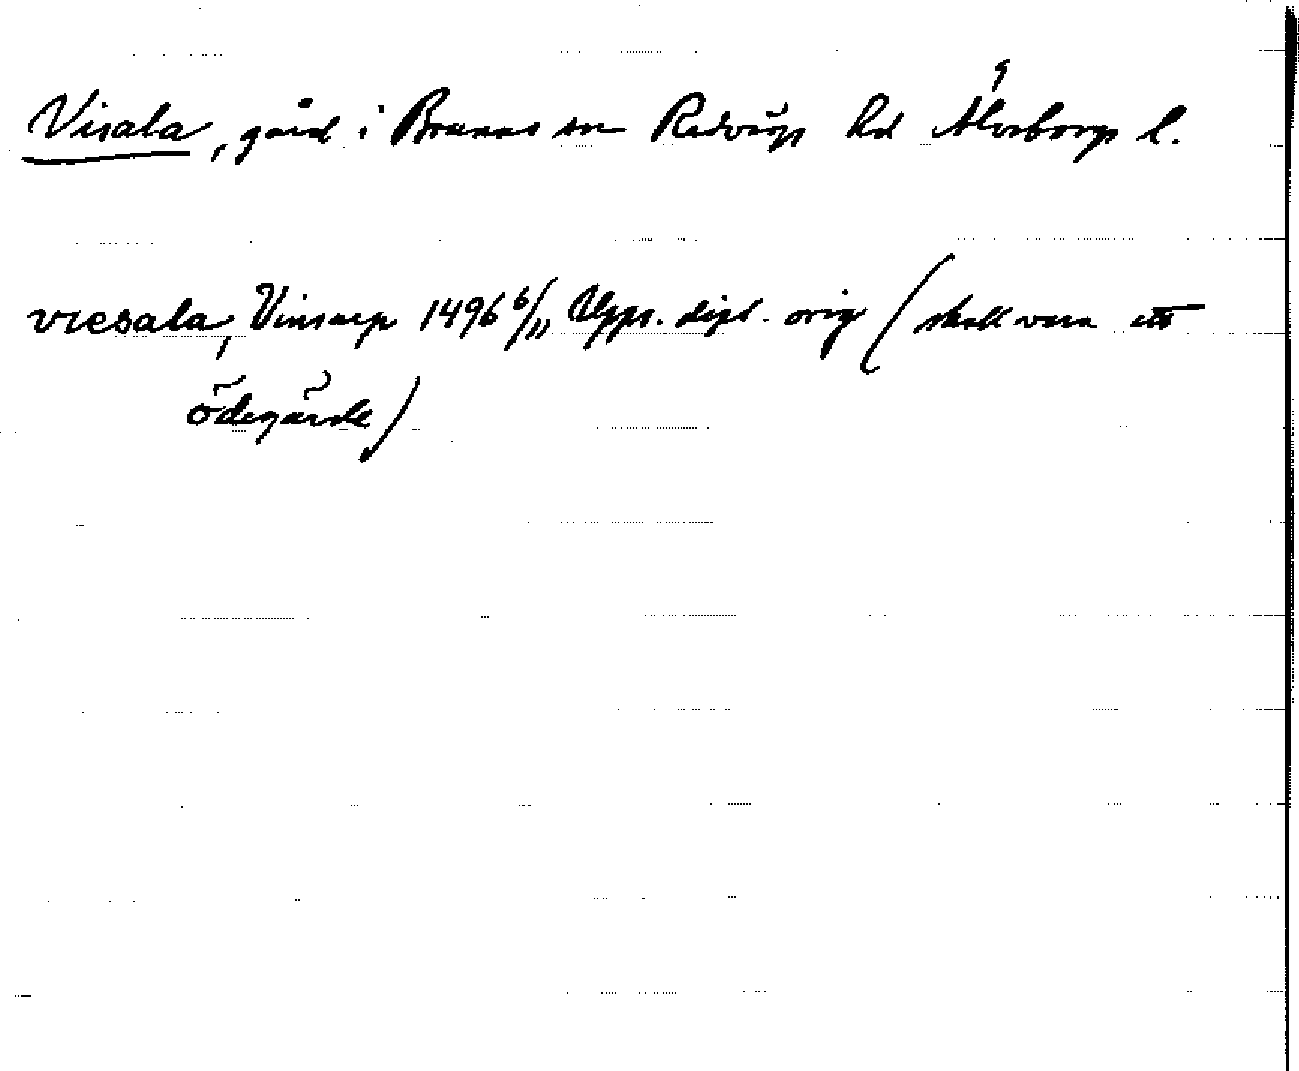 Visala, gård i Brunns sn Redvägs hd Älvsborgs l.
viesala, Vinsarp 1496 6/11 Upps. dipl. orig (skall vara ett
ödegärde)